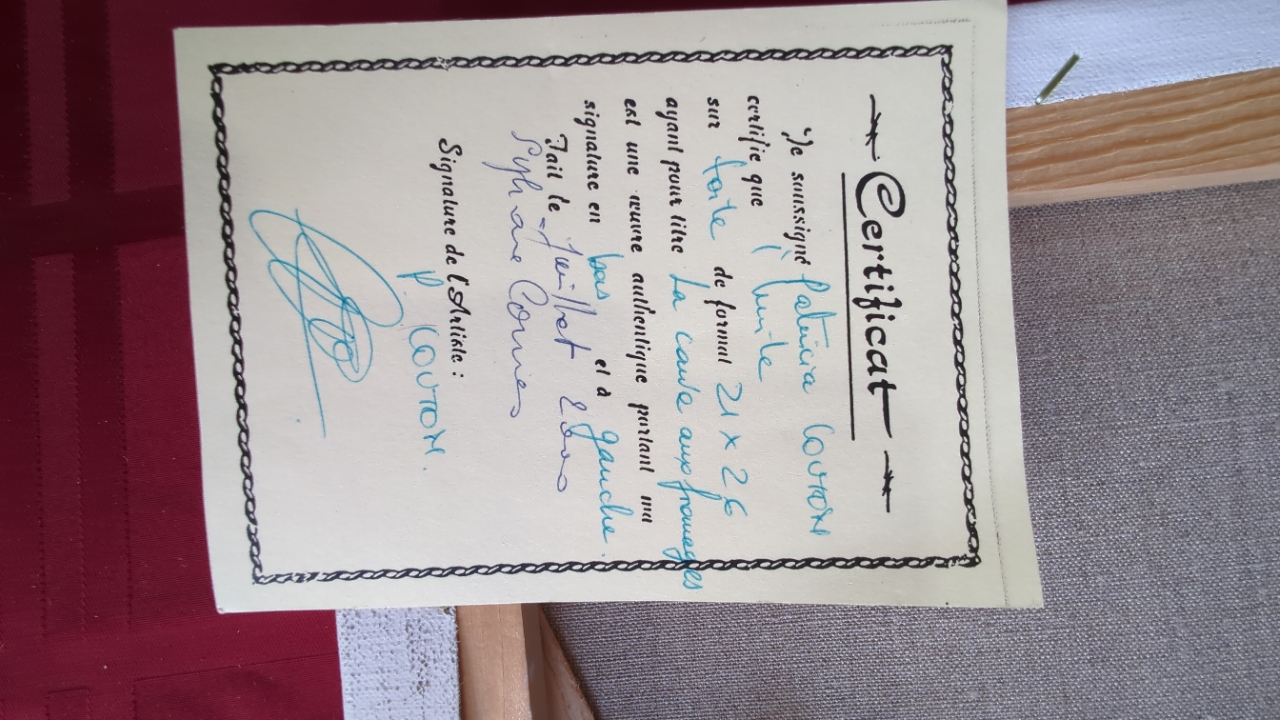 Certificat
Je soussigné Patricia COUTON
certifie que l'huile
sur toile de format 21 x 26
ayant pour titre La cave aux fromages
est une œuvre authentique portant ma
signature en bas et à gauche.
Fait le Juillet
Signature de l'Artiste :
P. COUTON.